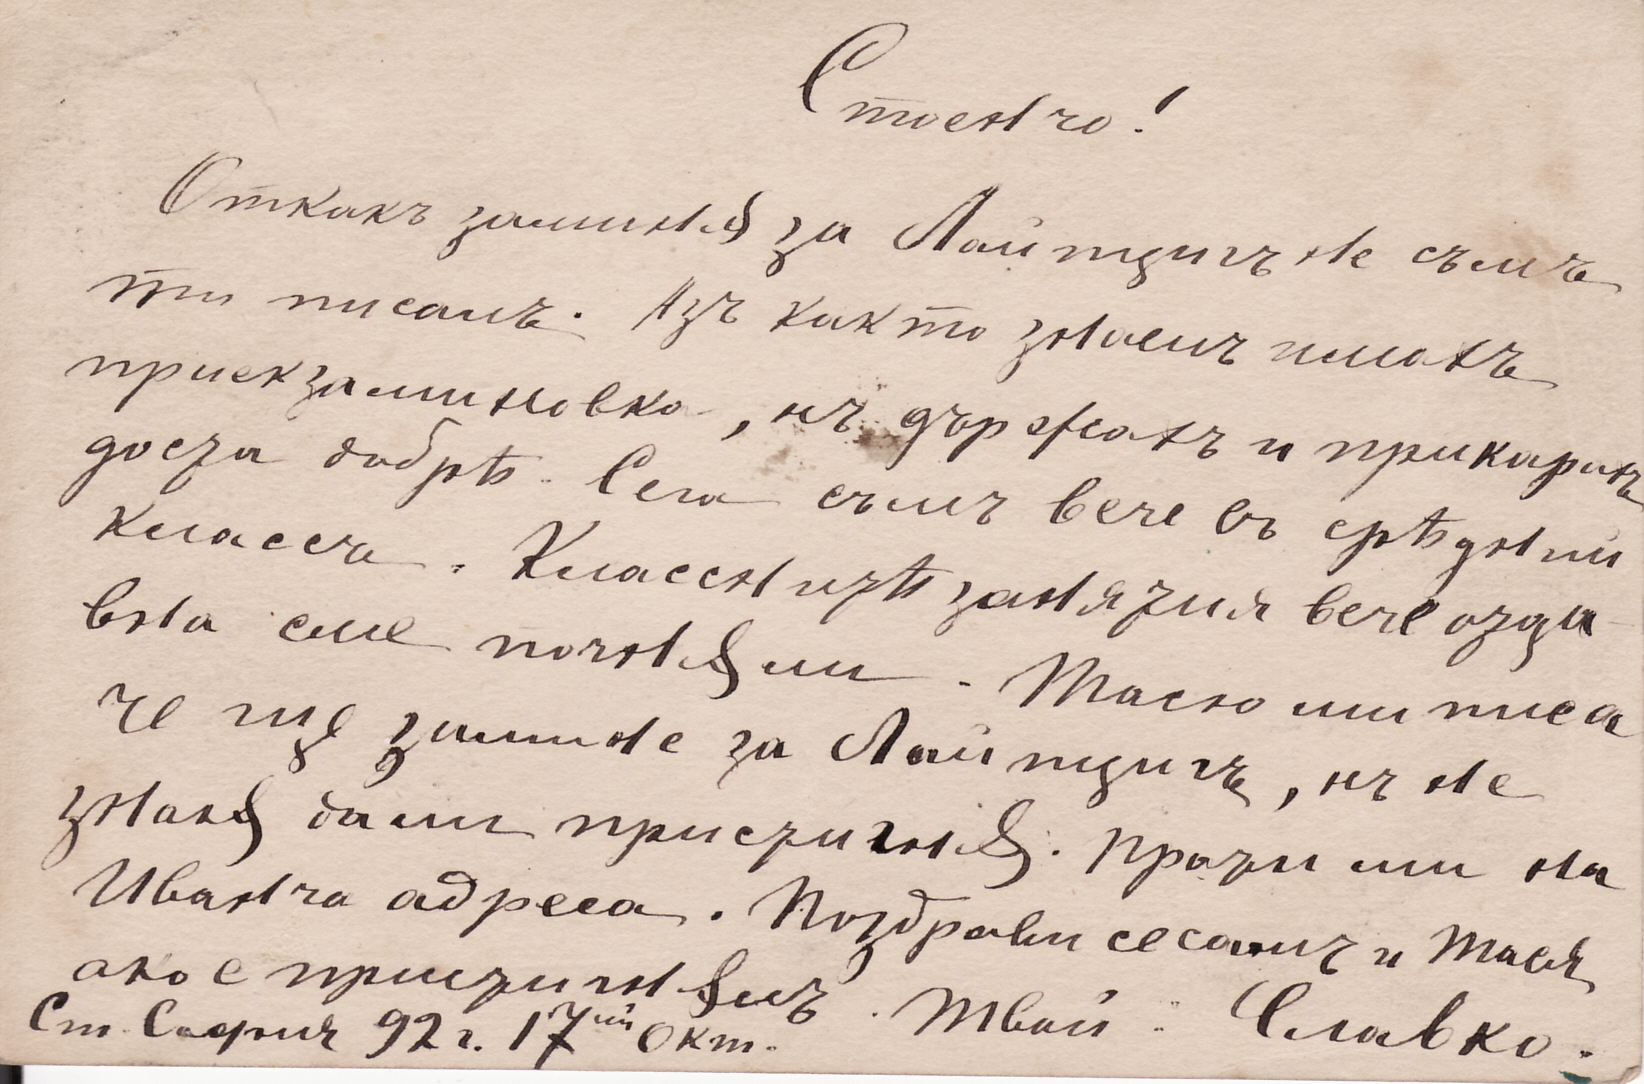 Стоенчо!
Откакъ заминѫ за Лайпцигъ не съмъ
ти писалъ. Азъ както знаешъ имахъ
приекзаминовка, нъ държахъ и прикарахъ
доста добрѣ. Сега съмъ вече въ срѣдний
классъ. Класснитѣ занятия вече отда-
вна сме почнѫли. Тасю ми писа
че ще замине за Лайпцигъ, нъ не
знаѭ дали пристигнѫ. Прати ми на
Иванча адреса. Поздрави се самъ и Тася
ако е пристигнѫлъ. Твой: Славко.
Ст. София 92 г. 17ий Окт.